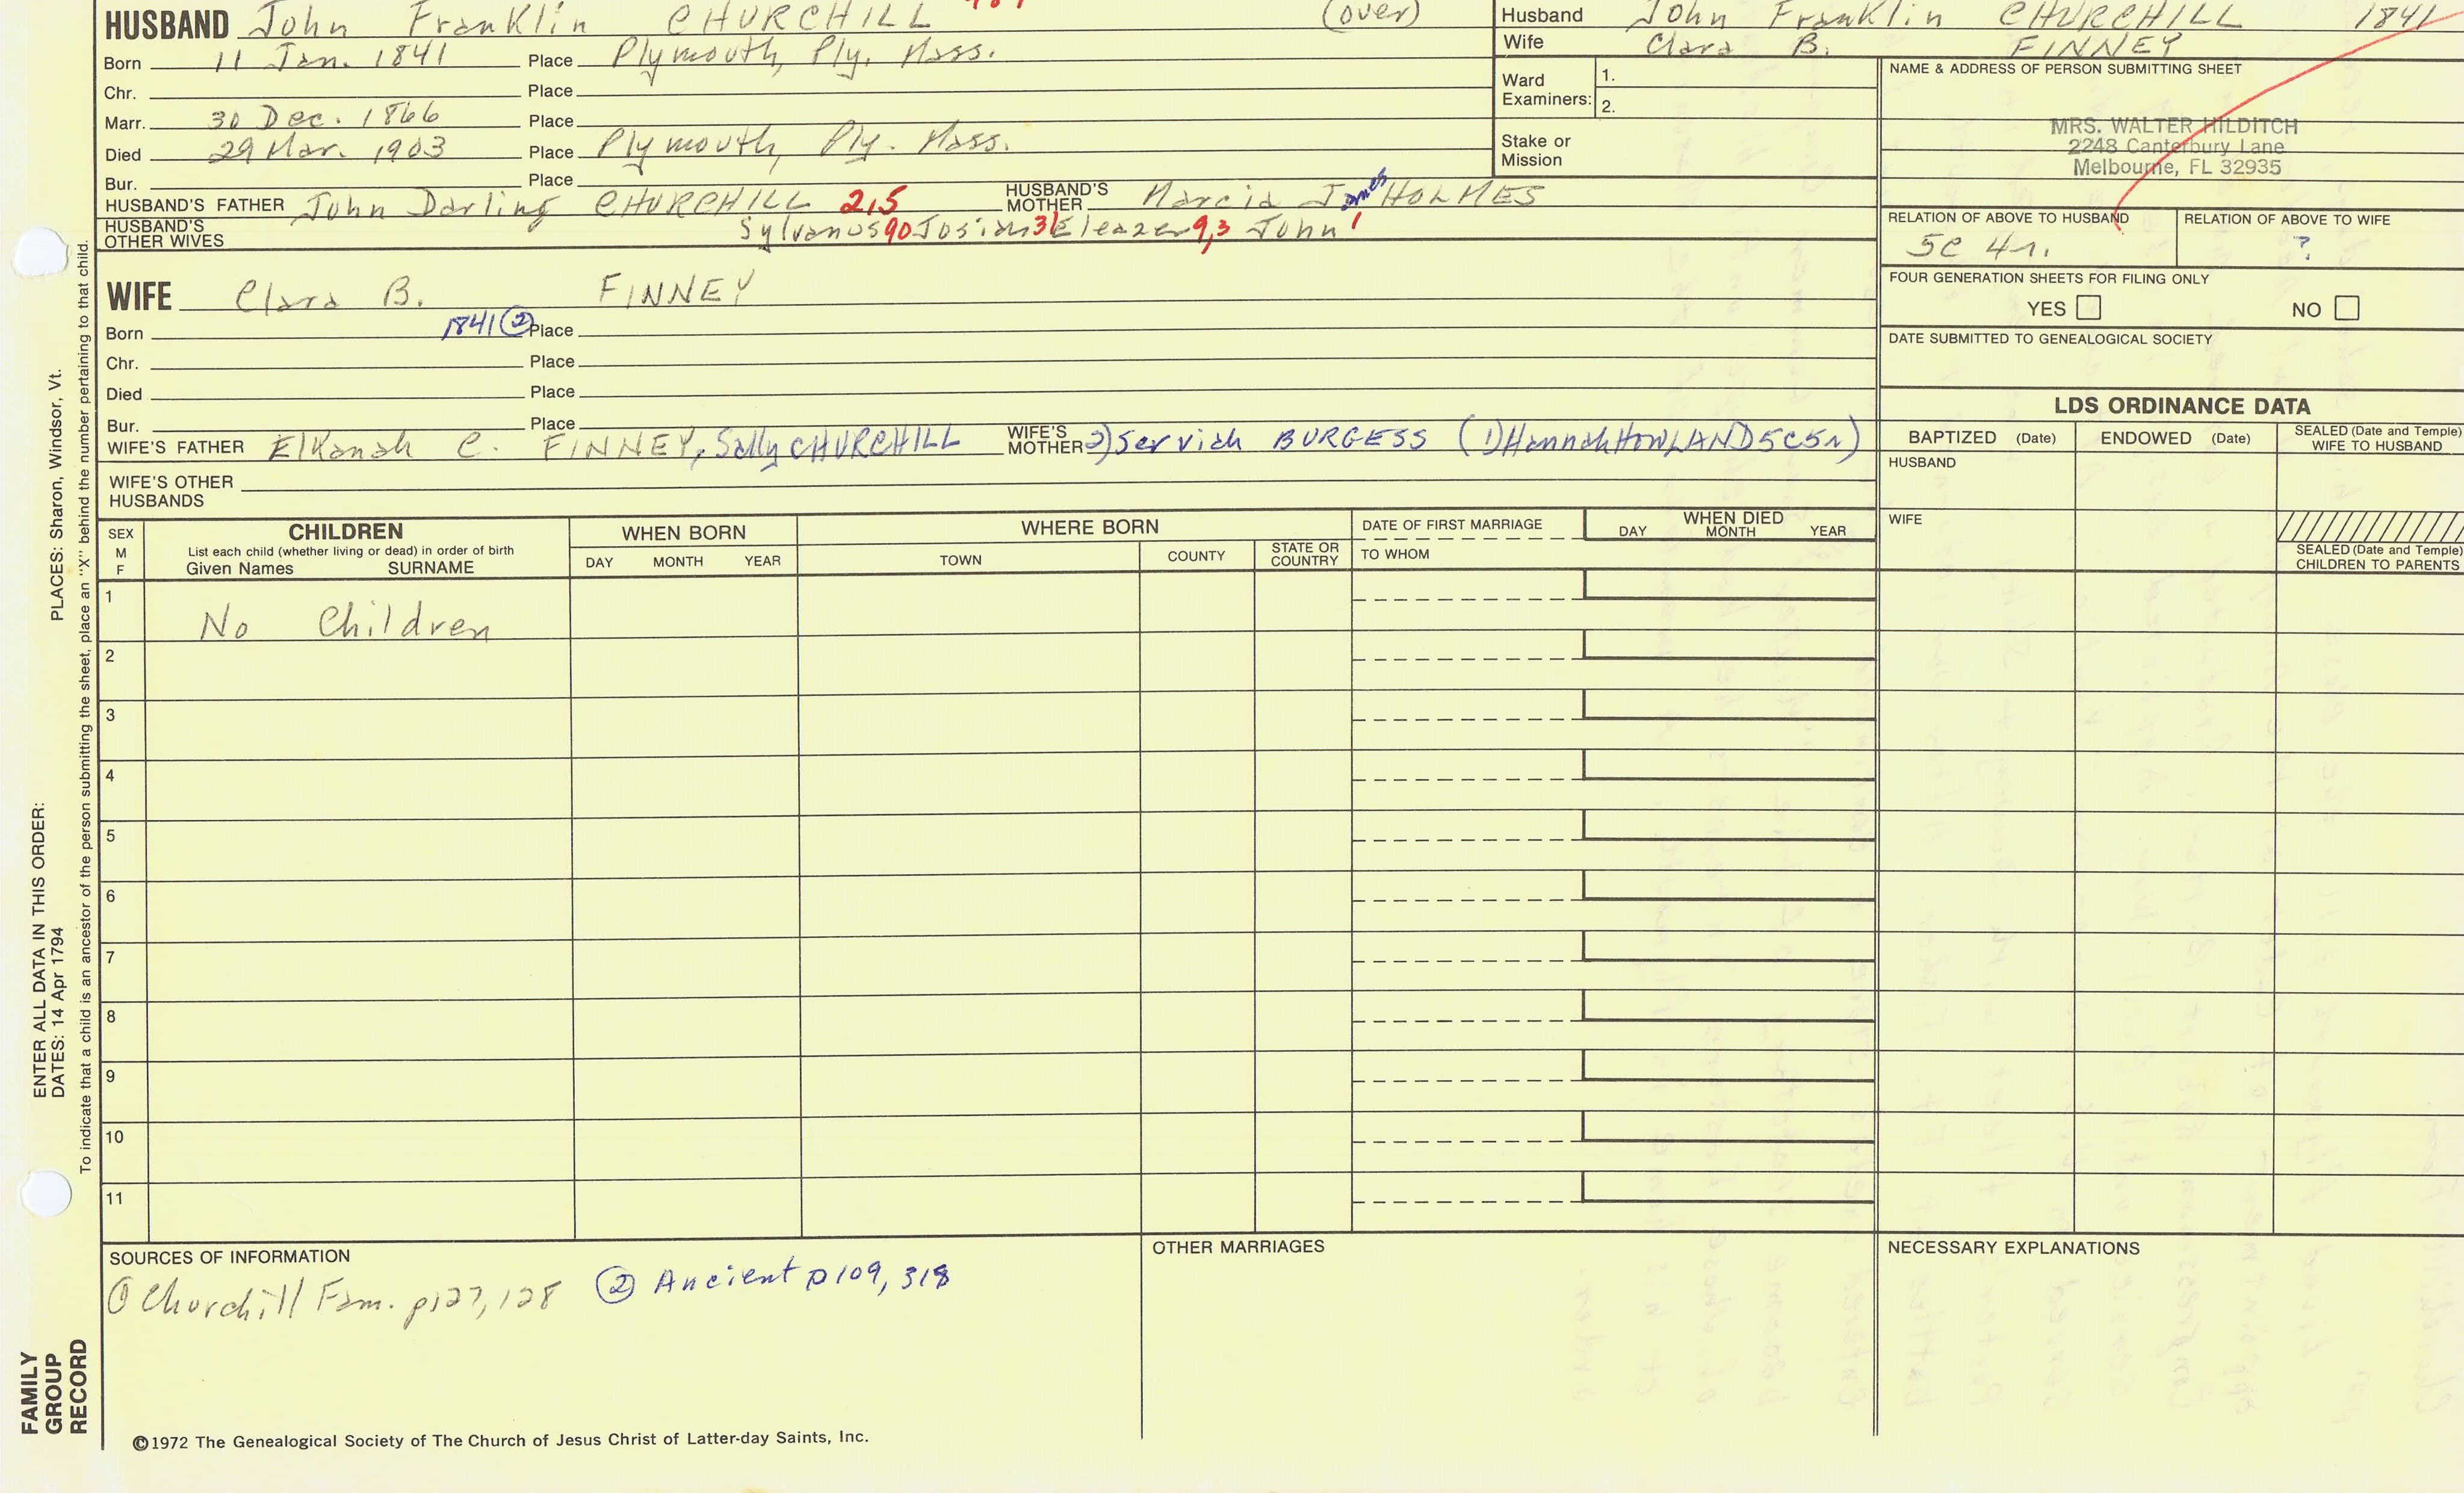 HUSBAND John Franklin CHURCHILL (over)
Born 11 Jan. 1841 Place Plymouth, Ply. Mass.
Chr. Place
Marr. 30 Dec. 1866 Place
Died 29 Mar. 1903 Place Plymouth, Ply. Mass.
Bur. Place
HUSBAND'S FATHER John Darling CHURCHILL 2,5 HUSBAND'S MOTHER Marcia James HOLMES
HUSBAND'S OTHER WIVES Sylvanus 90 Josiah 31 Eleazer 9,3 John 1
Husband John Franklin CHURCHILL 1841
Wife Clara B. FINNEY
Ward Examiners: 1.
2.
Stake or Mission
NAME & ADDRESS OF PERSON SUBMITTING SHEET
MRS. WALTER HILDITCH
2248 Canterbury Lane
Melbourne, FL 32935
RELATION OF ABOVE TO HUSBAND RELATION OF ABOVE TO WIFE
5C 4r. ?
FOUR GENERATION SHEETS FOR FILING ONLY
YES NO
DATE SUBMITTED TO GENEALOGICAL SOCIETY
WIFE Clara B. FINNEY
Born 1841 ② Place
Chr. Place
Died Place
Bur. Place
WIFE'S FATHER Elkanah C. FINNEY, Sally CHURCHILL WIFE'S MOTHER 2) Serviah BURGESS (1) Hannah HOWLAND 5C5r)
WIFE'S OTHER HUSBANDS
LDS ORDINANCE DATA
BAPTIZED (Date) ENDOWED (Date) SEALED (Date and Temple) WIFE TO HUSBAND
HUSBAND
WIFE
SEALED (Date and Temple) CHILDREN TO PARENTS
SEX M F
CHILDREN
List each child (whether living or dead) in order of birth
Given Names SURNAME
WHEN BORN
DAY MONTH YEAR
WHERE BORN
TOWN COUNTY STATE OR COUNTRY
DATE OF FIRST MARRIAGE
TO WHOM
WHEN DIED
DAY MONTH YEAR
1 No Children
2
3
4
5
6
7
8
9
10
11
SOURCES OF INFORMATION
① Churchill Fam. p127, 128 ② Ancient p109, 318
OTHER MARRIAGES
NECESSARY EXPLANATIONS
©1972 The Genealogical Society of The Church of Jesus Christ of Latter-day Saints, Inc.
FAMILY GROUP RECORD
ENTER ALL DATA IN THIS ORDER:
DATES: 14 Apr 1794
PLACES: Sharon, Windsor, Vt.
To indicate that a child is an ancestor of the person submitting the sheet, place an "X" behind the number pertaining to that child.